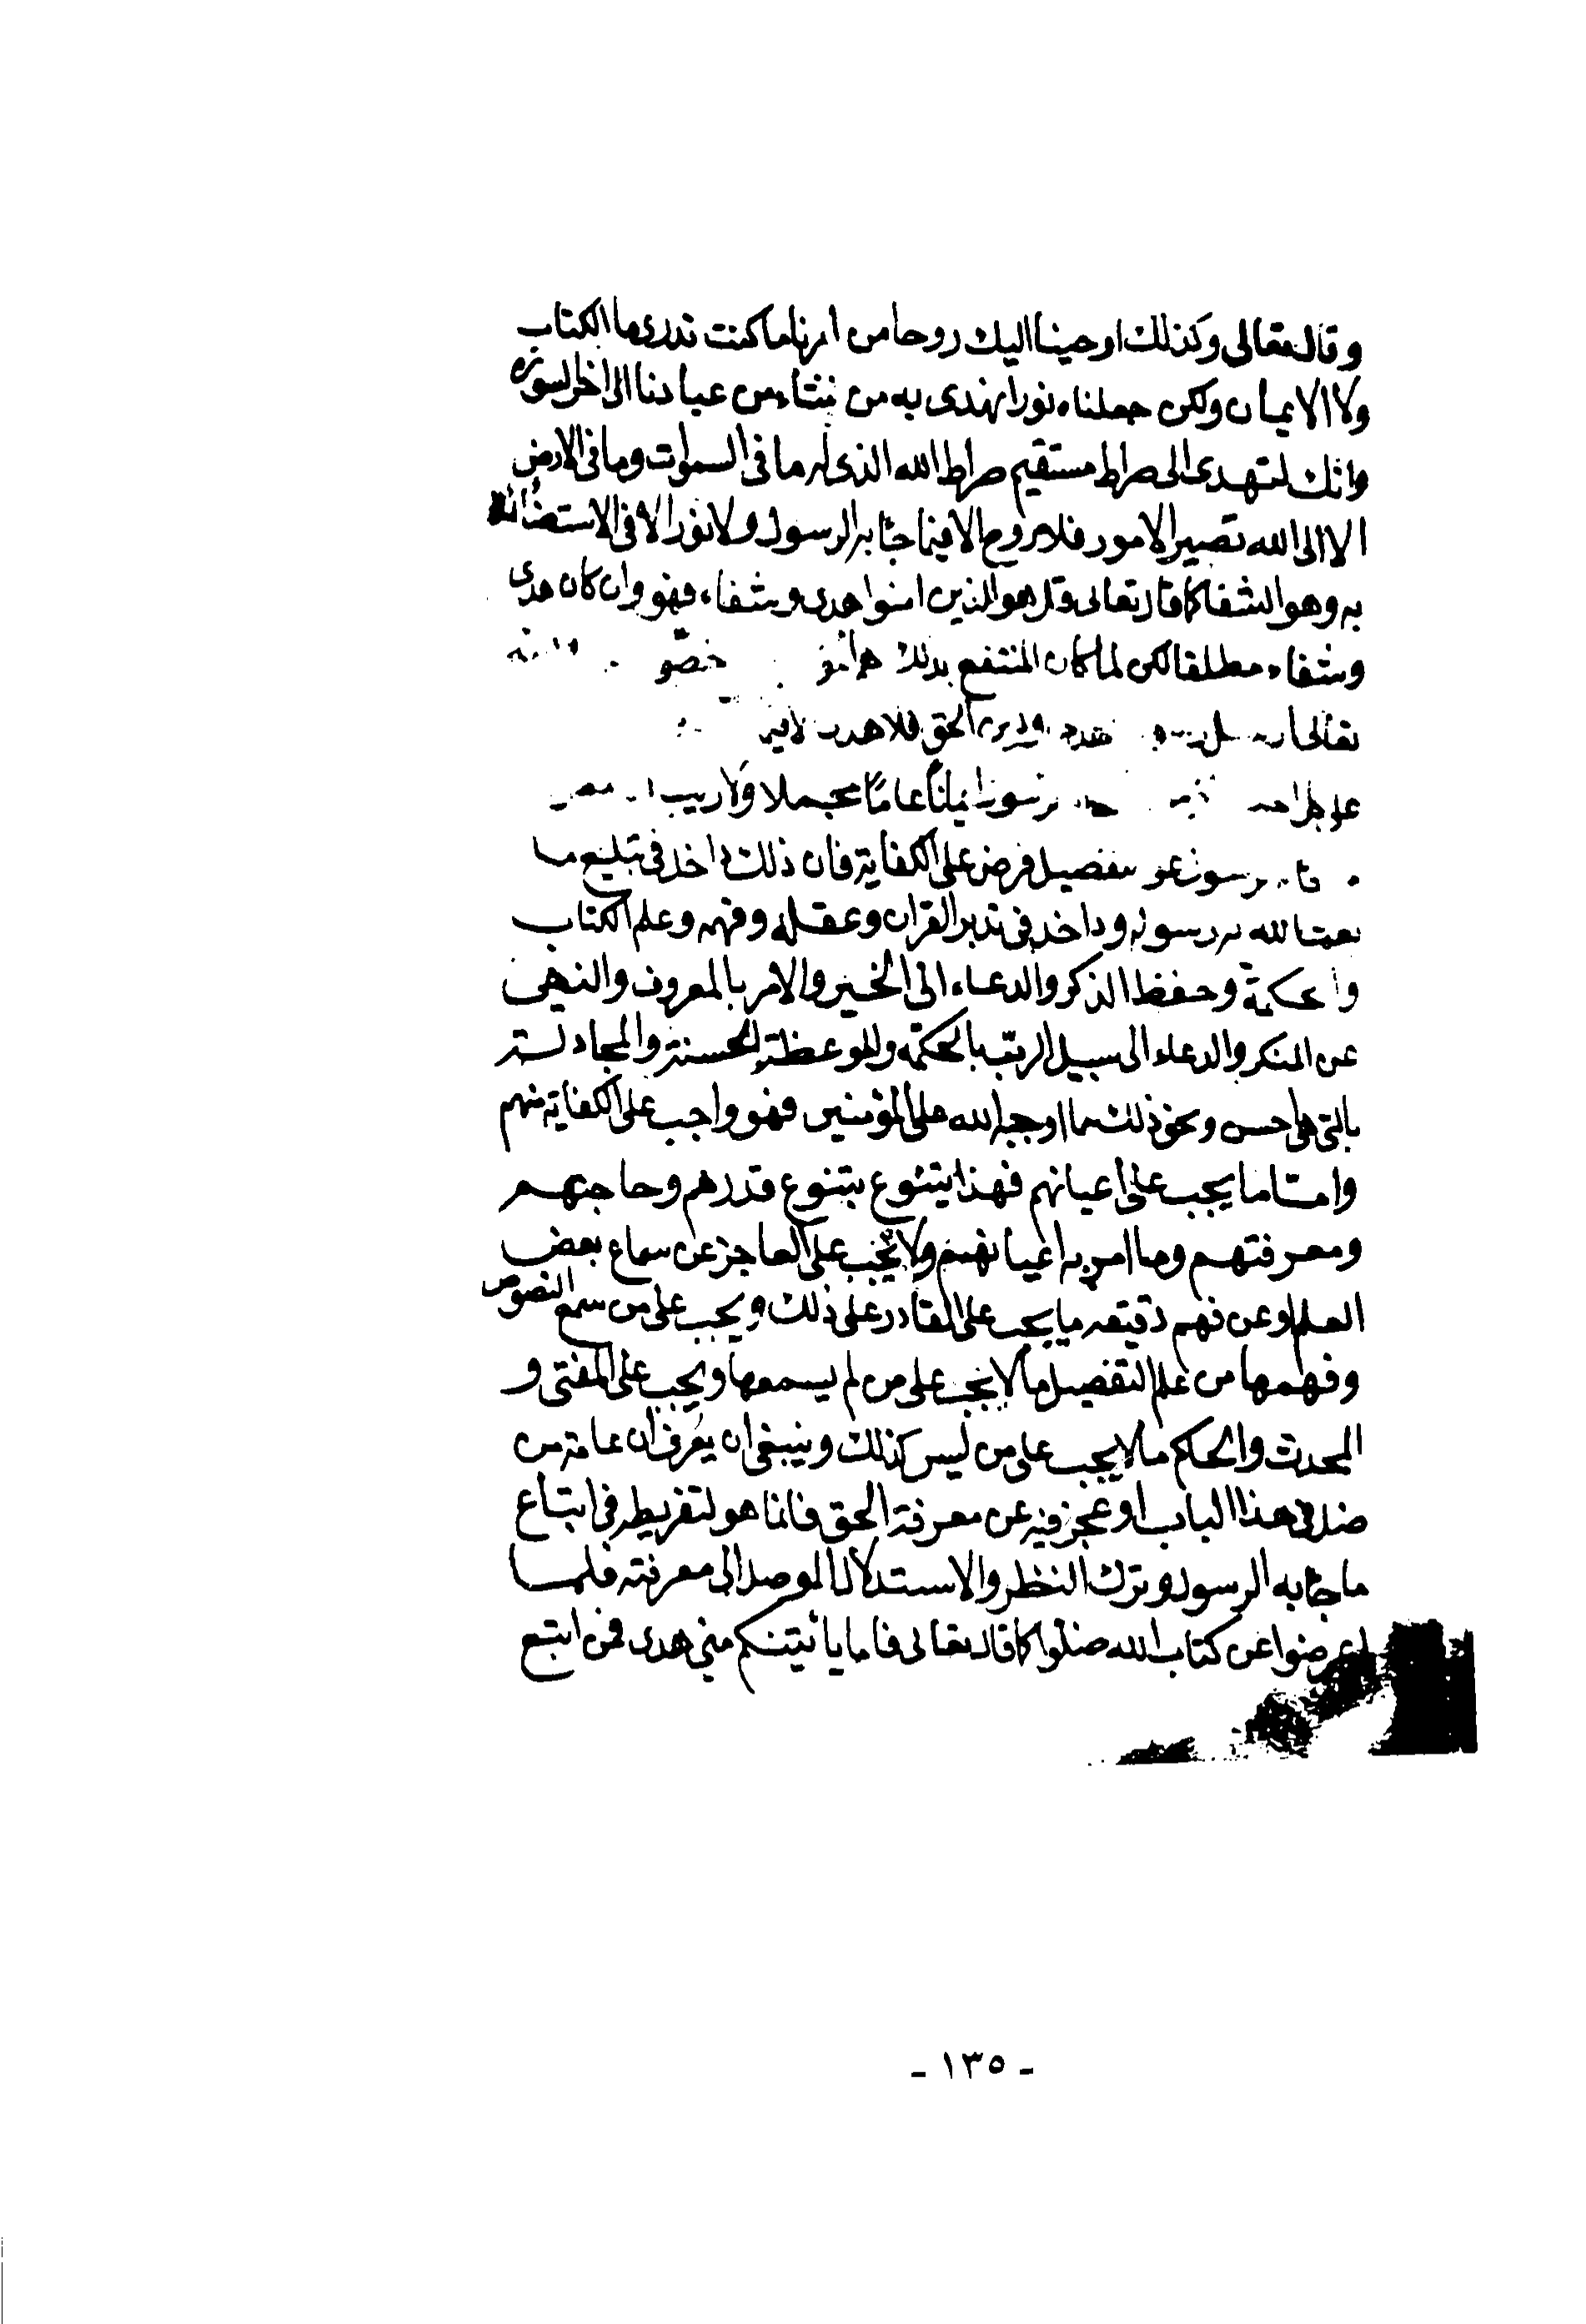 وقال تعالى وكذلك اوحينا اليك روحا من امرنا ما كنت تدرى ما الكتاب
ولا الايمان ولكن جعلناه نورا نهدى به من نشاء من عبادنا الى اخر السورة
وانك لتهدى الى صراط مستقيم صراط الله الذى له ما فى السموات وما فى الارض
الا الى الله تصير الامور فلا روح الا فيما جا به الرسول ولا نور الا فى الاستضائة
به وهو الشفا كما قال تعالى قل هو للذين امنوا هدى وشفاء فهو وان كان هدى
وشفاء مطلقا لكن لما كان المنتفع بذلك
تعالى الحق فلا هدى الا فيما
على ايمانا عاما مجملا ولا ريب
تفصيل فرض على الكفاية فان ذلك داخل فى تبليغ ما
بعث الله به رسوله وداخل فى تدبر القران وعقله وفهمه وعلم الكتاب
والحكمة وحفظ الذكر والدعاء الى الخير والامر بالمعروف والنهى
عن المنكر والدعاء الى سبيل الرب بالحكمة والموعظة الحسنة والمجادلة
بالتى هى احسن ونحو ذلك مما اوجبه الله على المؤمنين فهو واجب على الكفاية منهم
وامـا ما يجب على اعيانهم فهذا يتنوع بتنوع قدرهم وحاجتهم
ومعرفتهم وما امر به اعيانهم ولا يجب على العاجز عن سماع بعض
العلم او عن فهم دقيقه ما يجب على القادر على ذلك ويجب على من سمع النصوص
وفهمها من علم التفصيل ما لا يجب على من لم يسمعها ويجب على المفتى و
المحدث والحاكم ما لا يجب على من ليس كذلك وينبغى ان يعرف ان عامة من
ضل فى هذا الباب او عجز فيه عن معرفة الحق فانما هو لتفريطه فى اتباع
ما جا به الرسول وترك النظر والاستدلال الموصل الى معرفته فلما
اعرضوا عن كتاب الله ضلوا كما قال تعالى فاما يأتينكم منى هدى فمن اتبع
- ١٣٥ -